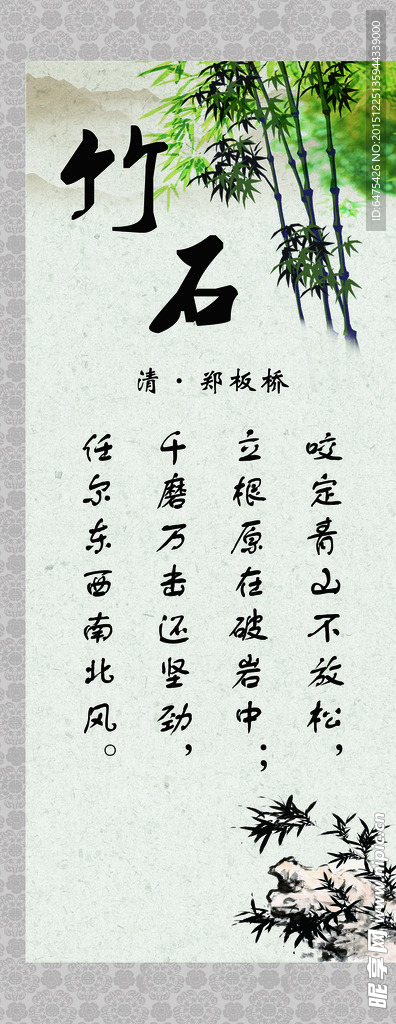 竹
石
清·郑板桥
咬定青山不放松，
立根原在破岩中；
千磨万击还坚劲，
任尔东西南北风。
ID:6475426 NO:20151225135944339000
昵享网 www.nipic.cn